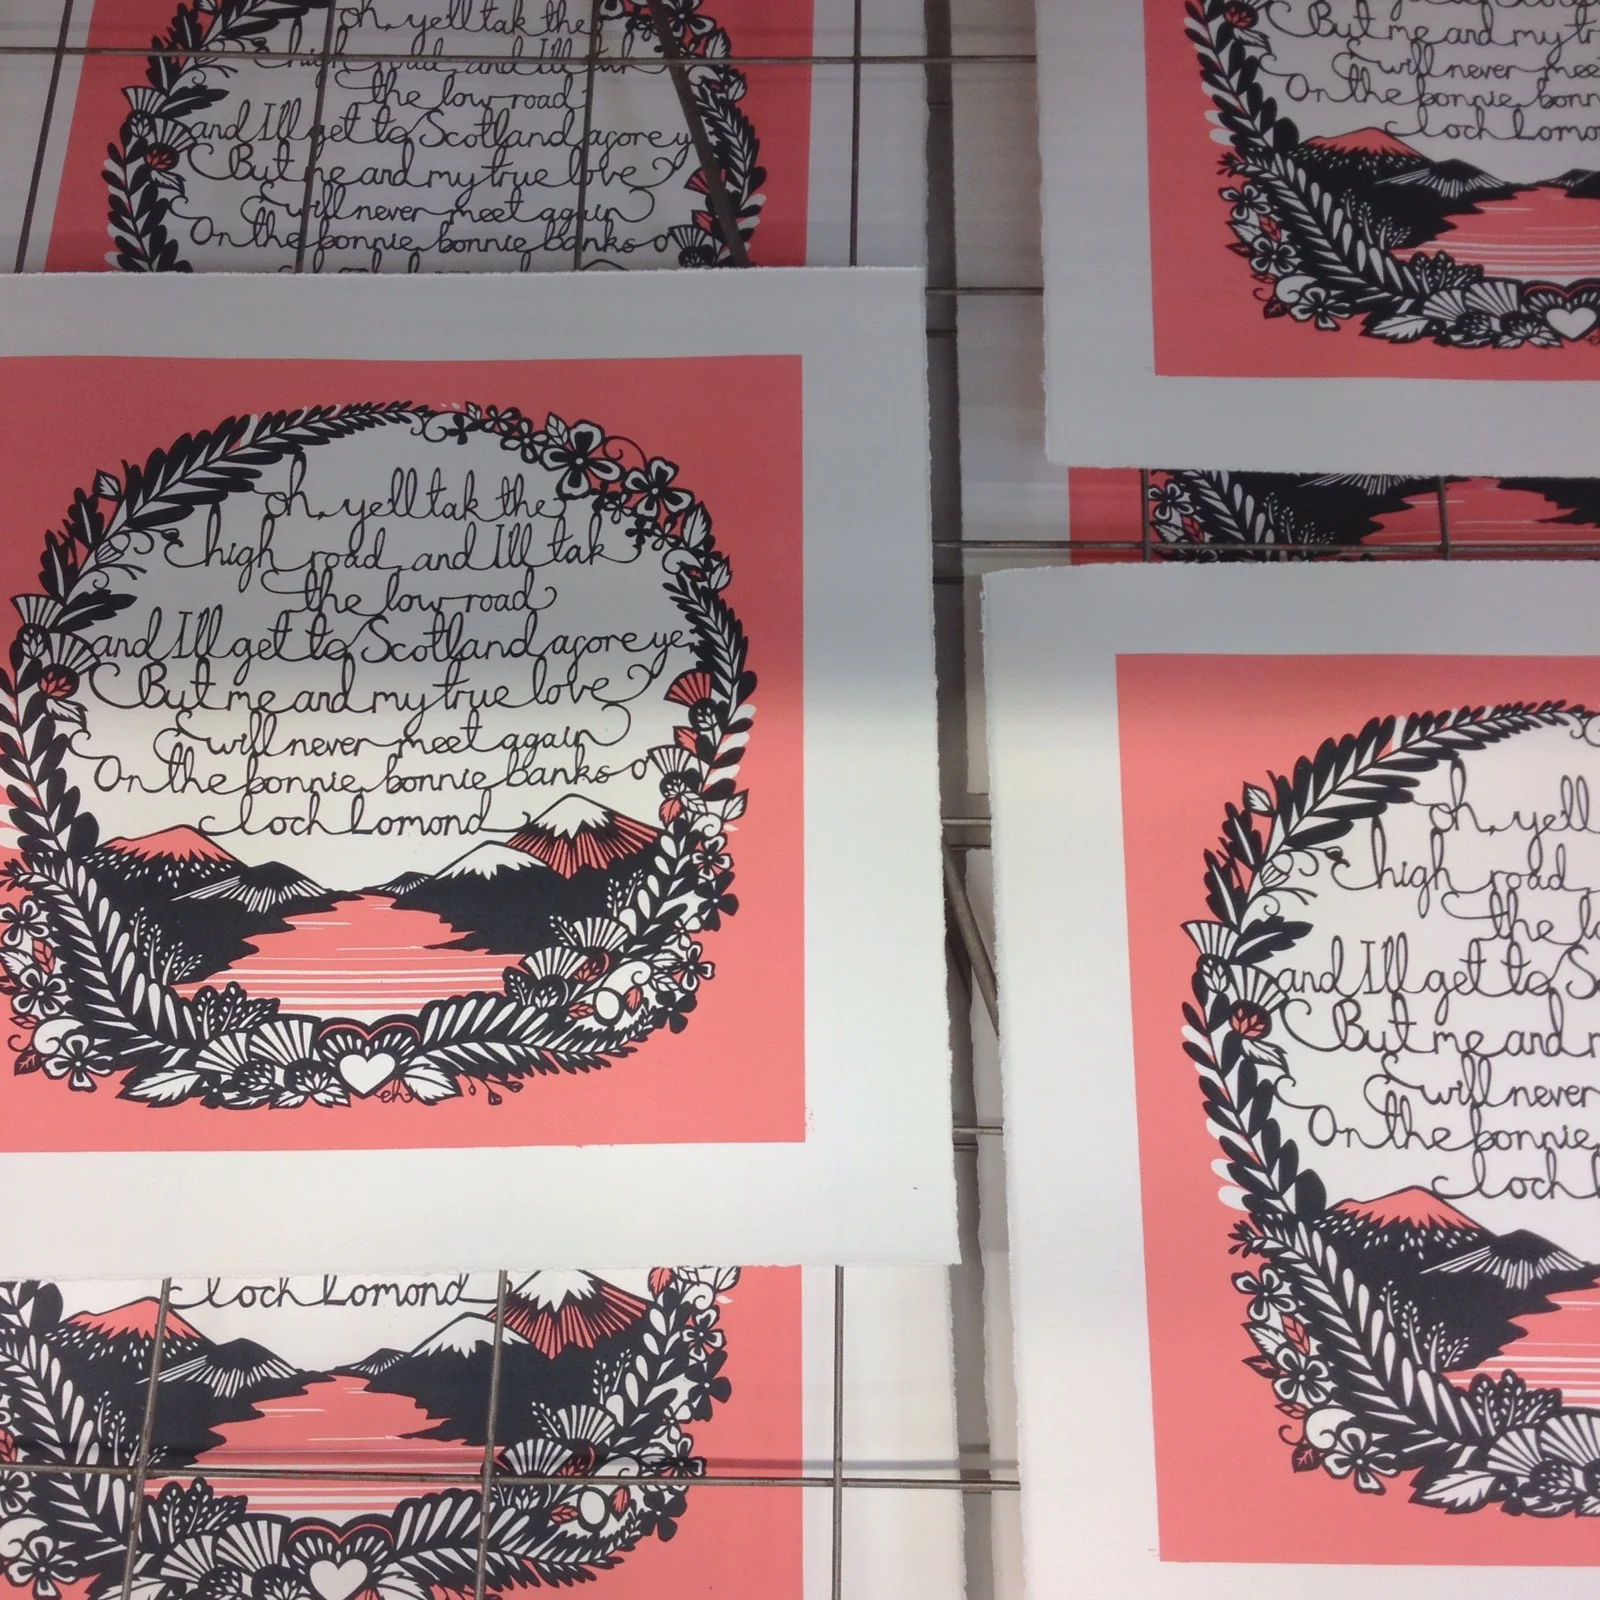 oh, yell tak the
high road, and Ill tak
the low road
and Ill get to Scotland afore ye
But me and my true love
will never meet again
On the bonnie bonnie banks o'
loch Lomond
eh
oh, yell tak the
high road, and Ill tak
the low road
and Ill get to Scotland afore ye
But me and my true love
will never meet again
On the bonnie bonnie banks o'
But me and my tr
will never mee
On the bonnie bonn
loch Lomo
oh, yell
high road,
the lo
and Ill get to Sc
But me and m
will never
On the bonnie
loch L
loch Lomond